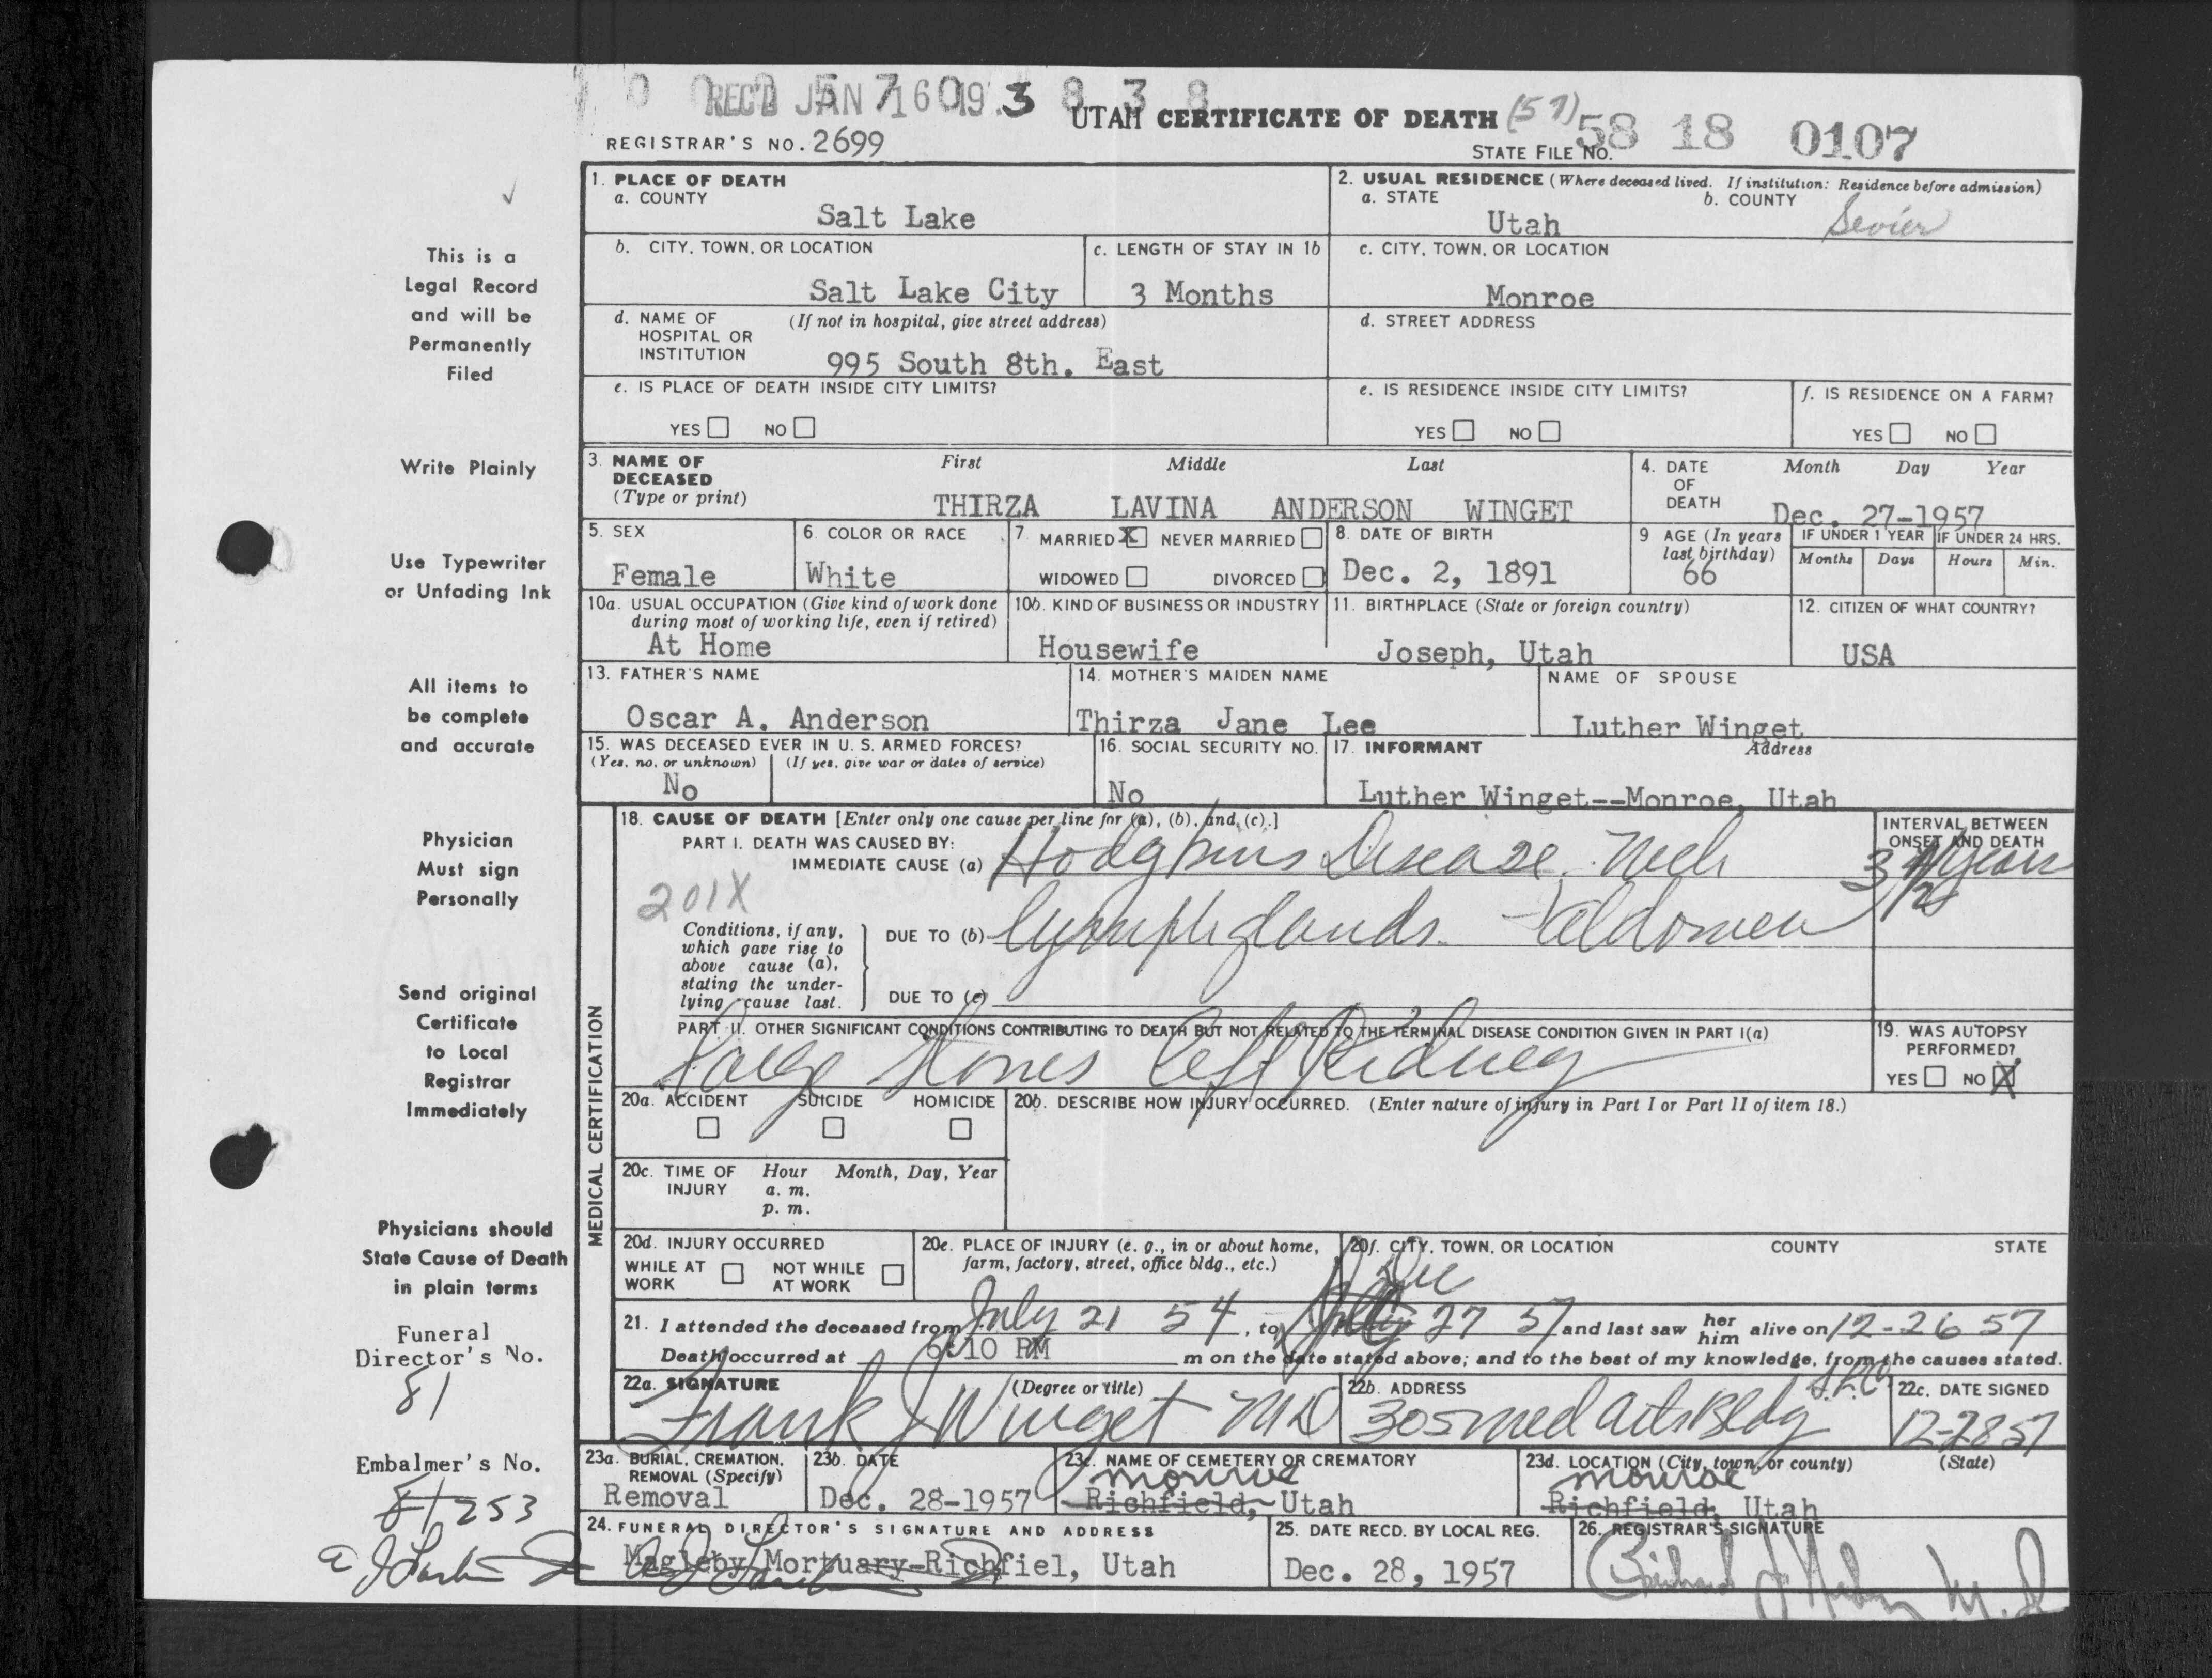 REC'D JAN 16
UTAH CERTIFICATE OF DEATH (57)
REGISTRAR'S NO. 2699
STATE FILE NO. 58 18 0107
1. PLACE OF DEATH
a. COUNTY
Salt Lake
2. USUAL RESIDENCE (Where deceased lived. If institution: Residence before admission)
a. STATE
Utah
b. COUNTY
Sevier
b. CITY, TOWN, OR LOCATION
Salt Lake City
c. LENGTH OF STAY IN 1b
3 Months
c. CITY, TOWN, OR LOCATION
Monroe
d. NAME OF HOSPITAL OR INSTITUTION
(If not in hospital, give street address)
995 South 8th. East
d. STREET ADDRESS
e. IS PLACE OF DEATH INSIDE CITY LIMITS?
YES NO
e. IS RESIDENCE INSIDE CITY LIMITS?
YES NO
f. IS RESIDENCE ON A FARM?
YES NO
3. NAME OF DECEASED
(Type or print)
First Middle Last
THIRZA LAVINA ANDERSON WINGET
4. DATE OF DEATH
Month Day Year
Dec. 27-1957
5. SEX
Female
6. COLOR OR RACE
White
7. MARRIED X NEVER MARRIED
WIDOWED DIVORCED
8. DATE OF BIRTH
Dec. 2, 1891
9 AGE (In years last birthday)
66
IF UNDER 1 YEAR
Months Days
IF UNDER 24 HRS.
Hours Min.
10a. USUAL OCCUPATION (Give kind of work done
during most of working life, even if retired)
At Home
10b. KIND OF BUSINESS OR INDUSTRY
Housewife
11. BIRTHPLACE (State or foreign country)
Joseph, Utah
12. CITIZEN OF WHAT COUNTRY?
USA
13. FATHER'S NAME
Oscar A. Anderson
14. MOTHER'S MAIDEN NAME
Thirza Jane Lee
NAME OF SPOUSE
Luther Winget
15. WAS DECEASED EVER IN U. S. ARMED FORCES?
(Yes, no, or unknown) (If yes, give war or dates of service)
No
16. SOCIAL SECURITY NO.
No
17. INFORMANT Address
Luther Winget--Monroe, Utah
MEDICAL CERTIFICATION
18. CAUSE OF DEATH [Enter only one cause per line for (a), (b), and (c).]
PART I. DEATH WAS CAUSED BY:
IMMEDIATE CAUSE (a) Hodgkins Disease. Neck
INTERVAL BETWEEN
ONSET AND DEATH
3 1/2 years
201X
Conditions, if any,
which gave rise to
above cause (a),
stating the under-
lying cause last.
DUE TO (b) lymph glands. + abdomen
DUE TO (c)
PART II. OTHER SIGNIFICANT CONDITIONS CONTRIBUTING TO DEATH BUT NOT RELATED TO THE TERMINAL DISEASE CONDITION GIVEN IN PART I(a)
Large Stones left Kidney
19. WAS AUTOPSY
PERFORMED?
YES NO X
20a. ACCIDENT SUICIDE HOMICIDE
20b. DESCRIBE HOW INJURY OCCURRED. (Enter nature of injury in Part I or Part II of item 18.)
20c. TIME OF INJURY
Hour Month, Day, Year
a. m.
p. m.
20d. INJURY OCCURRED
WHILE AT WORK NOT WHILE AT WORK
20e. PLACE OF INJURY (e. g., in or about home,
farm, factory, street, office bldg., etc.)
20f. CITY, TOWN, OR LOCATION COUNTY STATE
21. I attended the deceased from July 21 54, to Dec 27 57 and last saw her him alive on 12-26 57
Death occurred at 6:10 PM m on the date stated above; and to the best of my knowledge, from the causes stated.
22a. SIGNATURE (Degree or title)
Frank J Winget MD
22b. ADDRESS
305 Med Arts Bldg S.L.C.
22c. DATE SIGNED
12-28 57
23a. BURIAL, CREMATION,
REMOVAL (Specify)
Removal
23b. DATE
Dec. 28-1957
23c. NAME OF CEMETERY OR CREMATORY
Monroe
Richfield, Utah
23d. LOCATION (City, town, or county) (State)
Monroe
Richfield, Utah
24. FUNERAL DIRECTOR'S SIGNATURE AND ADDRESS
Magleby Mortuary-Richfiel, Utah
25. DATE RECD. BY LOCAL REG.
Dec. 28, 1957
26. REGISTRAR'S SIGNATURE
M.D.
This is a
Legal Record
and will be
Permanently
Filed
Write Plainly
Use Typewriter
or Unfading Ink
All items to
be complete
and accurate
Physician
Must sign
Personally
Send original
Certificate
to Local
Registrar
Immediately
Physicians should
State Cause of Death
in plain terms
Funeral
Director's No.
81
Embalmer's No.
81 253